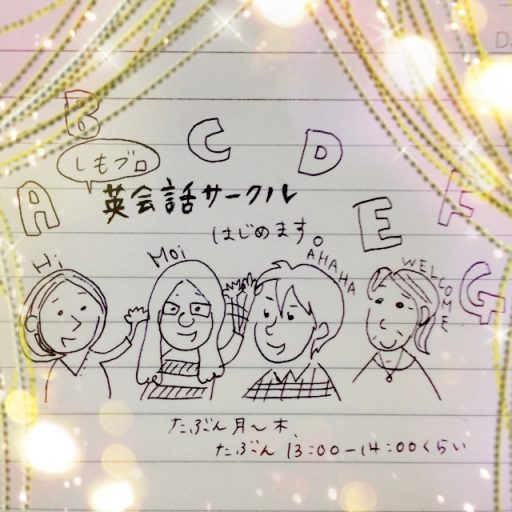 A B C D E F G
しもブロ
英会話サークル
はじめます。
Hi
Moi
AHAHA
WELCOME
たぶん月～木、
たぶん 13:00-14:00くらい